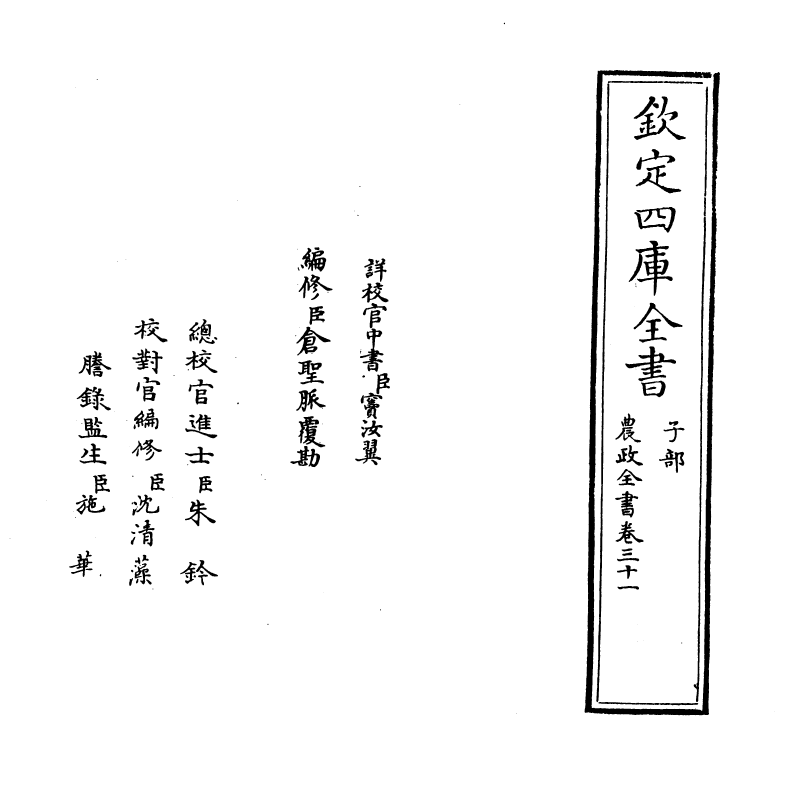 欽定四庫全書
子部
農政全書卷三十一
詳校官中書臣竇汝翼
編修臣倉聖脈覆勘
總校官進士臣朱鈐
校對官編修臣沈清藻
謄錄監生臣施華